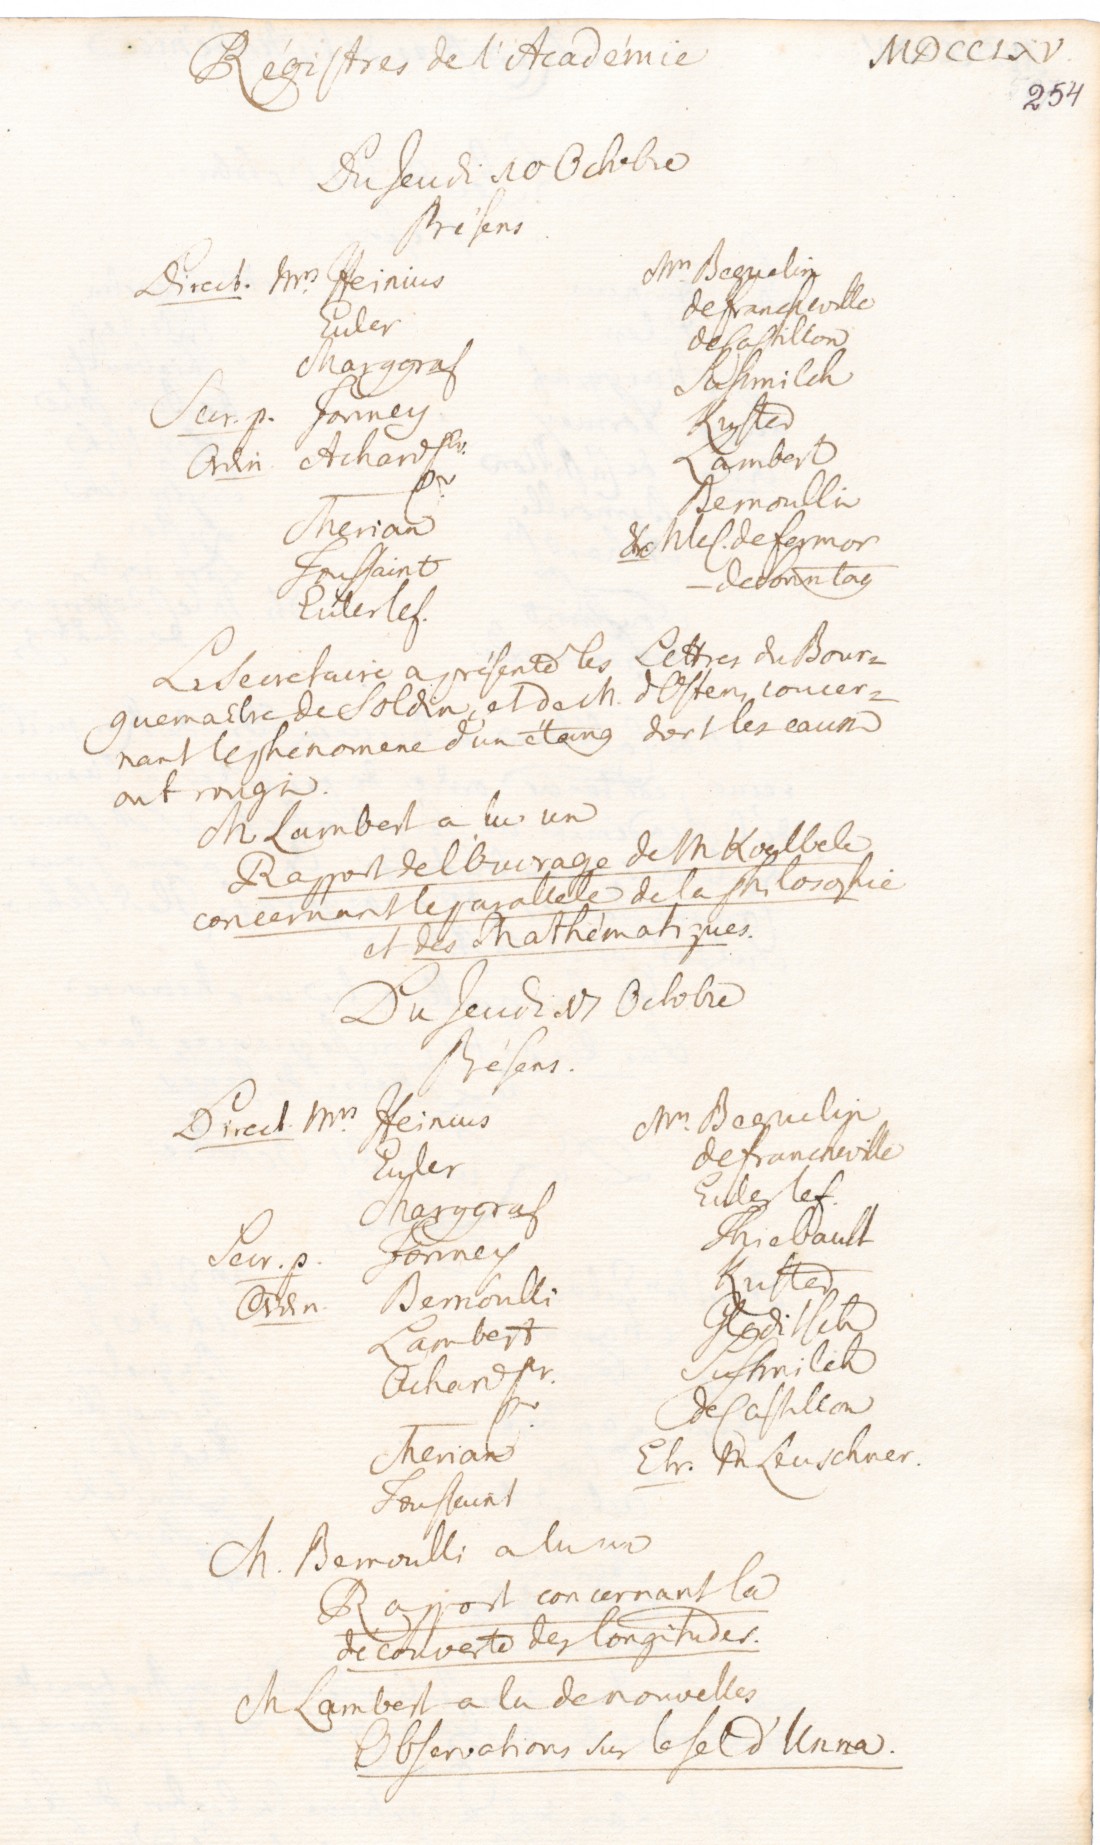 Régistres de l'Académie
MDCCLXV.
254
Du Jeudi 10 Octobre
Présens
Direct. Mrs. Heinius
Euler
Marggraf
Secr. p. Formey
Ordin. Achard Pr.
Pr
Merian
Toussaint
Euler le f.
Mrs. Beguelin
de francheville
de Castillon
Susmilch
Kuster
Lambert
Bernoulli
M le C. de fermor
– de Sonntag
Le Secretaire a présenté les Lettres du Bour=
guemaitre de Soldin, et de M. d'Osten, concer=
nant le phénomene d'un étang dont les eaux
ont rougi.
M Lambert a lu un
Rapport de l'Ouvrage de M Koelbele
concernant le parallele de la philosophie
et des Mathématiques.
Du Jeudi 17 Octobre
Présens.
Direct. Mrs. Heinius
Euler
Marggraf
Secr. p. Formey
Ordin. Bernoulli
Lambert
Achard Pr.
Pr
Merian
Toussaint
Mrs. Beguelin
de francheville
Euler le f.
Thiebault
Kuster
Gleditsch
Susmilch
de Castillon
Etr. M Leuschner.
M. Bernoulli a lu un
Rapport concernant la
découverte des longitudes.
M Lambert a lu de nouvelles
Observations sur le sel d'Unna.